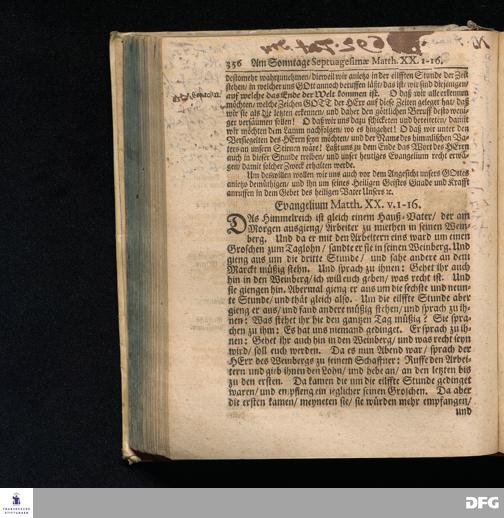 356 Am Sonntage Septuagesimæ Matth. XX. 1-16.
destomehr wahrzunehmen/ dieweil wir anietzo in der eilfften Stunde der Zeit
stehen/ in welcher uns GOtt annoch beruffen läßt/ das ist/ wir sind diejenigen/
auf welche das Ende der Welt kommen ist. O daß wir alle erkennen
möchten/ welche Zeichen GOTT der HErr auf diese Zeiten geleget hat/ daß
wir sie als die letzten erkennen/ und daher den göttlichen Beruff desto weni-
ger versäumen sollen! O daß wir uns dazu schickten und bereiteten/ damit
wir möchten dem Lamm nachfolgen/ wo es hingehet! O daß wir unter den
Versiegelten des HErrn seyn möchten/ und der Name des himmlischen Va-
ters an unsern Stirnen wäre! Laßt uns zu dem Ende das Wort des HErrn
auch in dieser Stunde treiben/ und unser heutiges Evangelium recht erwä-
gen/ damit solcher Zweck erhalten werde.
Um deswillen wollen wir uns auch vor dem Angesicht unsers GOttes
anietzo demüthigen/ und ihn um seines Heiligen Geistes Gnade und Krafft
anruffen in dem Gebet des heiligen Vater Unsers ꝛc.
Evangelium Matth. XX. v. 1-16.
DAs Himmelreich ist gleich einem Hauß-Vater/ der am
Morgen ausgieng/ Arbeiter zu miethen in seinen Wein-
berg. Und da er mit den Arbeitern eins ward um einen
Groschen zum Taglohn/ sandte er sie in seinen Weinberg. Und
gieng aus um die dritte Stunde/ und sahe andere an dem
Marckt müßig stehn. Und sprach zu ihnen: Gehet ihr auch
hin in den Weinberg/ ich will euch geben/ was recht ist. Und
sie giengen hin. Abermal gieng er aus um die sechste und neun-
te Stunde/ und thät gleich also. Um die eilffte Stunde aber
gieng er aus/ und fand andere müßig stehen/ und sprach zu ih-
nen: Was stehet ihr hie den gantzen Tag müßig? Sie spra-
chen zu ihm: Es hat uns niemand gedinget. Er sprach zu ih-
nen: Gehet ihr auch hin in den Weinberg/ und was recht seyn
wird/ soll euch werden. Da es nun Abend war/ sprach der
HErr des Weinbergs zu seinem Schaffner: Ruffe den Arbei-
tern und gieb ihnen den Lohn/ und hebe an/ an den letzten bis
zu den ersten. Da kamen die um die eilffte Stunde gedinget
waren/ und empfieng ein ieglicher seinen Groschen. Da aber
die ersten kamen/ meyneten sie/ sie würden mehr empfangen/
und
FRANCKESCHE
STIFTUNGEN
DFG